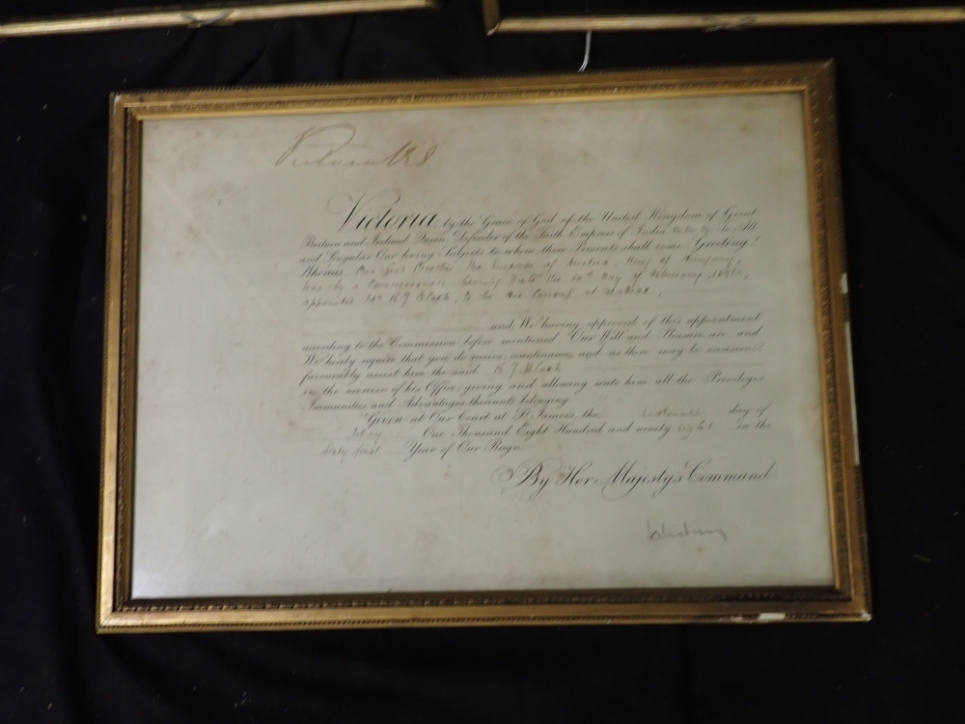 Victoria R I
Victoria, by the Grace of God, of the United Kingdom of Great
Britain and Ireland, Queen, Defender of the Faith, Empress of India &c &c &c To All
and Singular Our loving Subjects to whom these Presents shall come, Greeting!
Whereas Our Good Brother The Emperor of Austria, King of Hungary,
has by a Commission bearing Date the day of February, 1898,
appointed Mr R J Black, to be His Consul at Madras,
and We having approved of this appointment
according to the Commission before mentioned Our Will and Pleasure are and
We hereby require that you do receive, countenance, and as there may be occasion
favourably assist him the said R J Black
in the exercise of his Office, giving and allowing unto him all the Privileges
Immunities and Advantages thereunto belonging
Given at Our Court at St James's, the day of
One Thousand Eight Hundred and ninety eight in the
Sixty first Year of Our Reign
By Her Majesty's Command
Salisbury